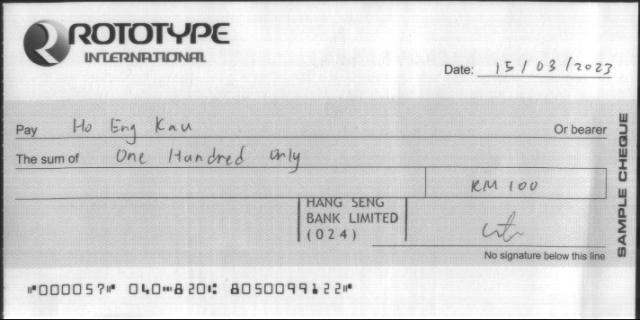 ROTOTYPE
INTERNATIONAL
Date: 15/03/2023
Pay Ho Eng Kau Or bearer
The sum of One Hundred Only
RM 100
HANG SENG
BANK LIMITED
(024)
No signature below this line
SAMPLE CHEQUE
⑈000057⑈ 040⑉820⑆ 8050099122⑈